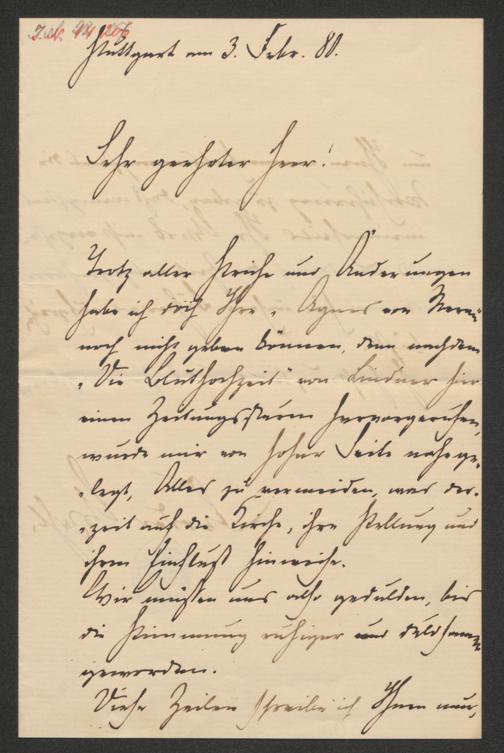 Stuttgart am 3. Febr. 80.
Sehr geehrter Herr!
Trotz aller Striche und Änderungen
habe ich doch Ihre „Agnes von Meran"
noch nicht geben können, denn nachdem
„Die Bluthochzeit" von Lindner hier
einen Zeitungssturm hervorgerufen,
wurde mir von hoher Seite nahege-
legt, Alles zu vermeiden, was der-
zeit auf die Kirche, ihre Stellung und
ihren Einfluß hinweise.
Wir müssen uns also gedulden, bis
die Stimmung ruhiger und duldsamer
geworden.
Diese Zeilen schreibe ich Ihnen nur,